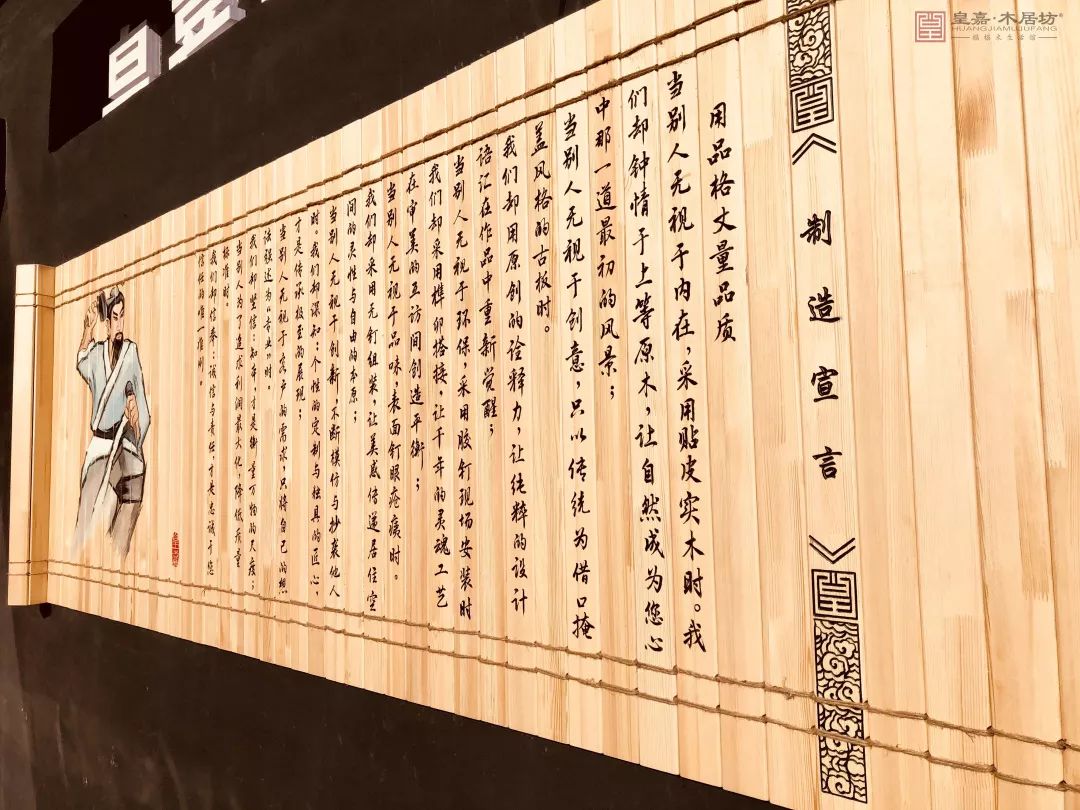 皇嘉·木居坊®
HUANGJIAMUJUFANG
《制造宣言》
用品格丈量品质
当别人无视于内在,采用贴皮实木时。我
们却钟情于上等原木,让自然成为您心
中那一道最初的风景;
当别人无视于创意,只以传统为借口掩
盖风格的古板时。
我们却用原创的诠释力,让纯粹的设计
语汇在作品中重新觉醒;
当别人无视于环保,采用胶钉现场安装时
我们却采用榫卯搭接,让千年的灵魂工艺
在审美的互访间创造平衡;
当别人无视于品味,表面钉眼疮痍时。
我们却采用无钉组装,让美感传递居住空
间的灵性与自由的本原;
当别人无视于创新,不断模仿与抄袭他人
时。我们却深知:个性的定制与独具的匠心,
才是传承极至的展现;
当别人无视于客户的需求,只将自己的想
法强述为“专业”时。
我们却坚信:知年,才是衡量万物的尺度;
当别人为了追求利润最大化,降低质量
标准时。
我们却信奉:诚信与责任,才是忠诚于您
信任的唯一准则。